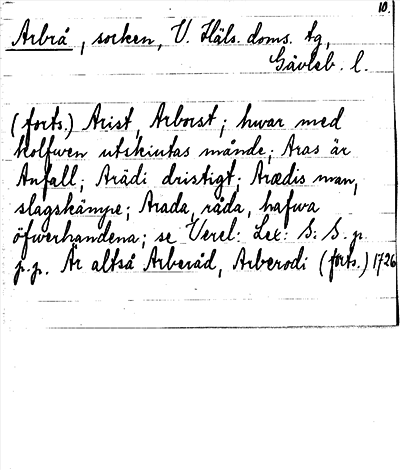 10.
Arbrå, socken, V. Häls. doms. tg,
Gävleb. l.
(forts.) Arist, Arborst; hwar med
kolfwen utskiutas månde; Aras är
Anfall; Arädi dristigt; Arædis man,
slagskämpe; Arada, råda, hafwa
öfwerhandena; se Verel: Lex: S: S. p.
p.p. Är altså Arberåd, Arberodi (forts.) 1726